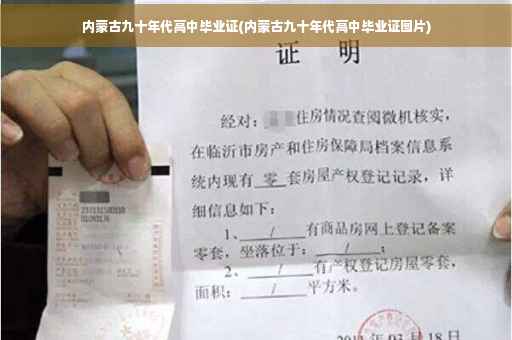 内蒙古九十年代高中毕业证(内蒙古九十年代高中毕业证图片)
证 明
经对：住房情况查阅微机核实，
在临沂市房产和住房保障局档案信息系
统内现有 零 套房屋产权登记记录，详
细信息如下：
1、 / 有商品房网上登记备案
零套，坐落位于： / ；
2、 / 有产权登记房屋零套，
面积： / 平方米。
03月18日